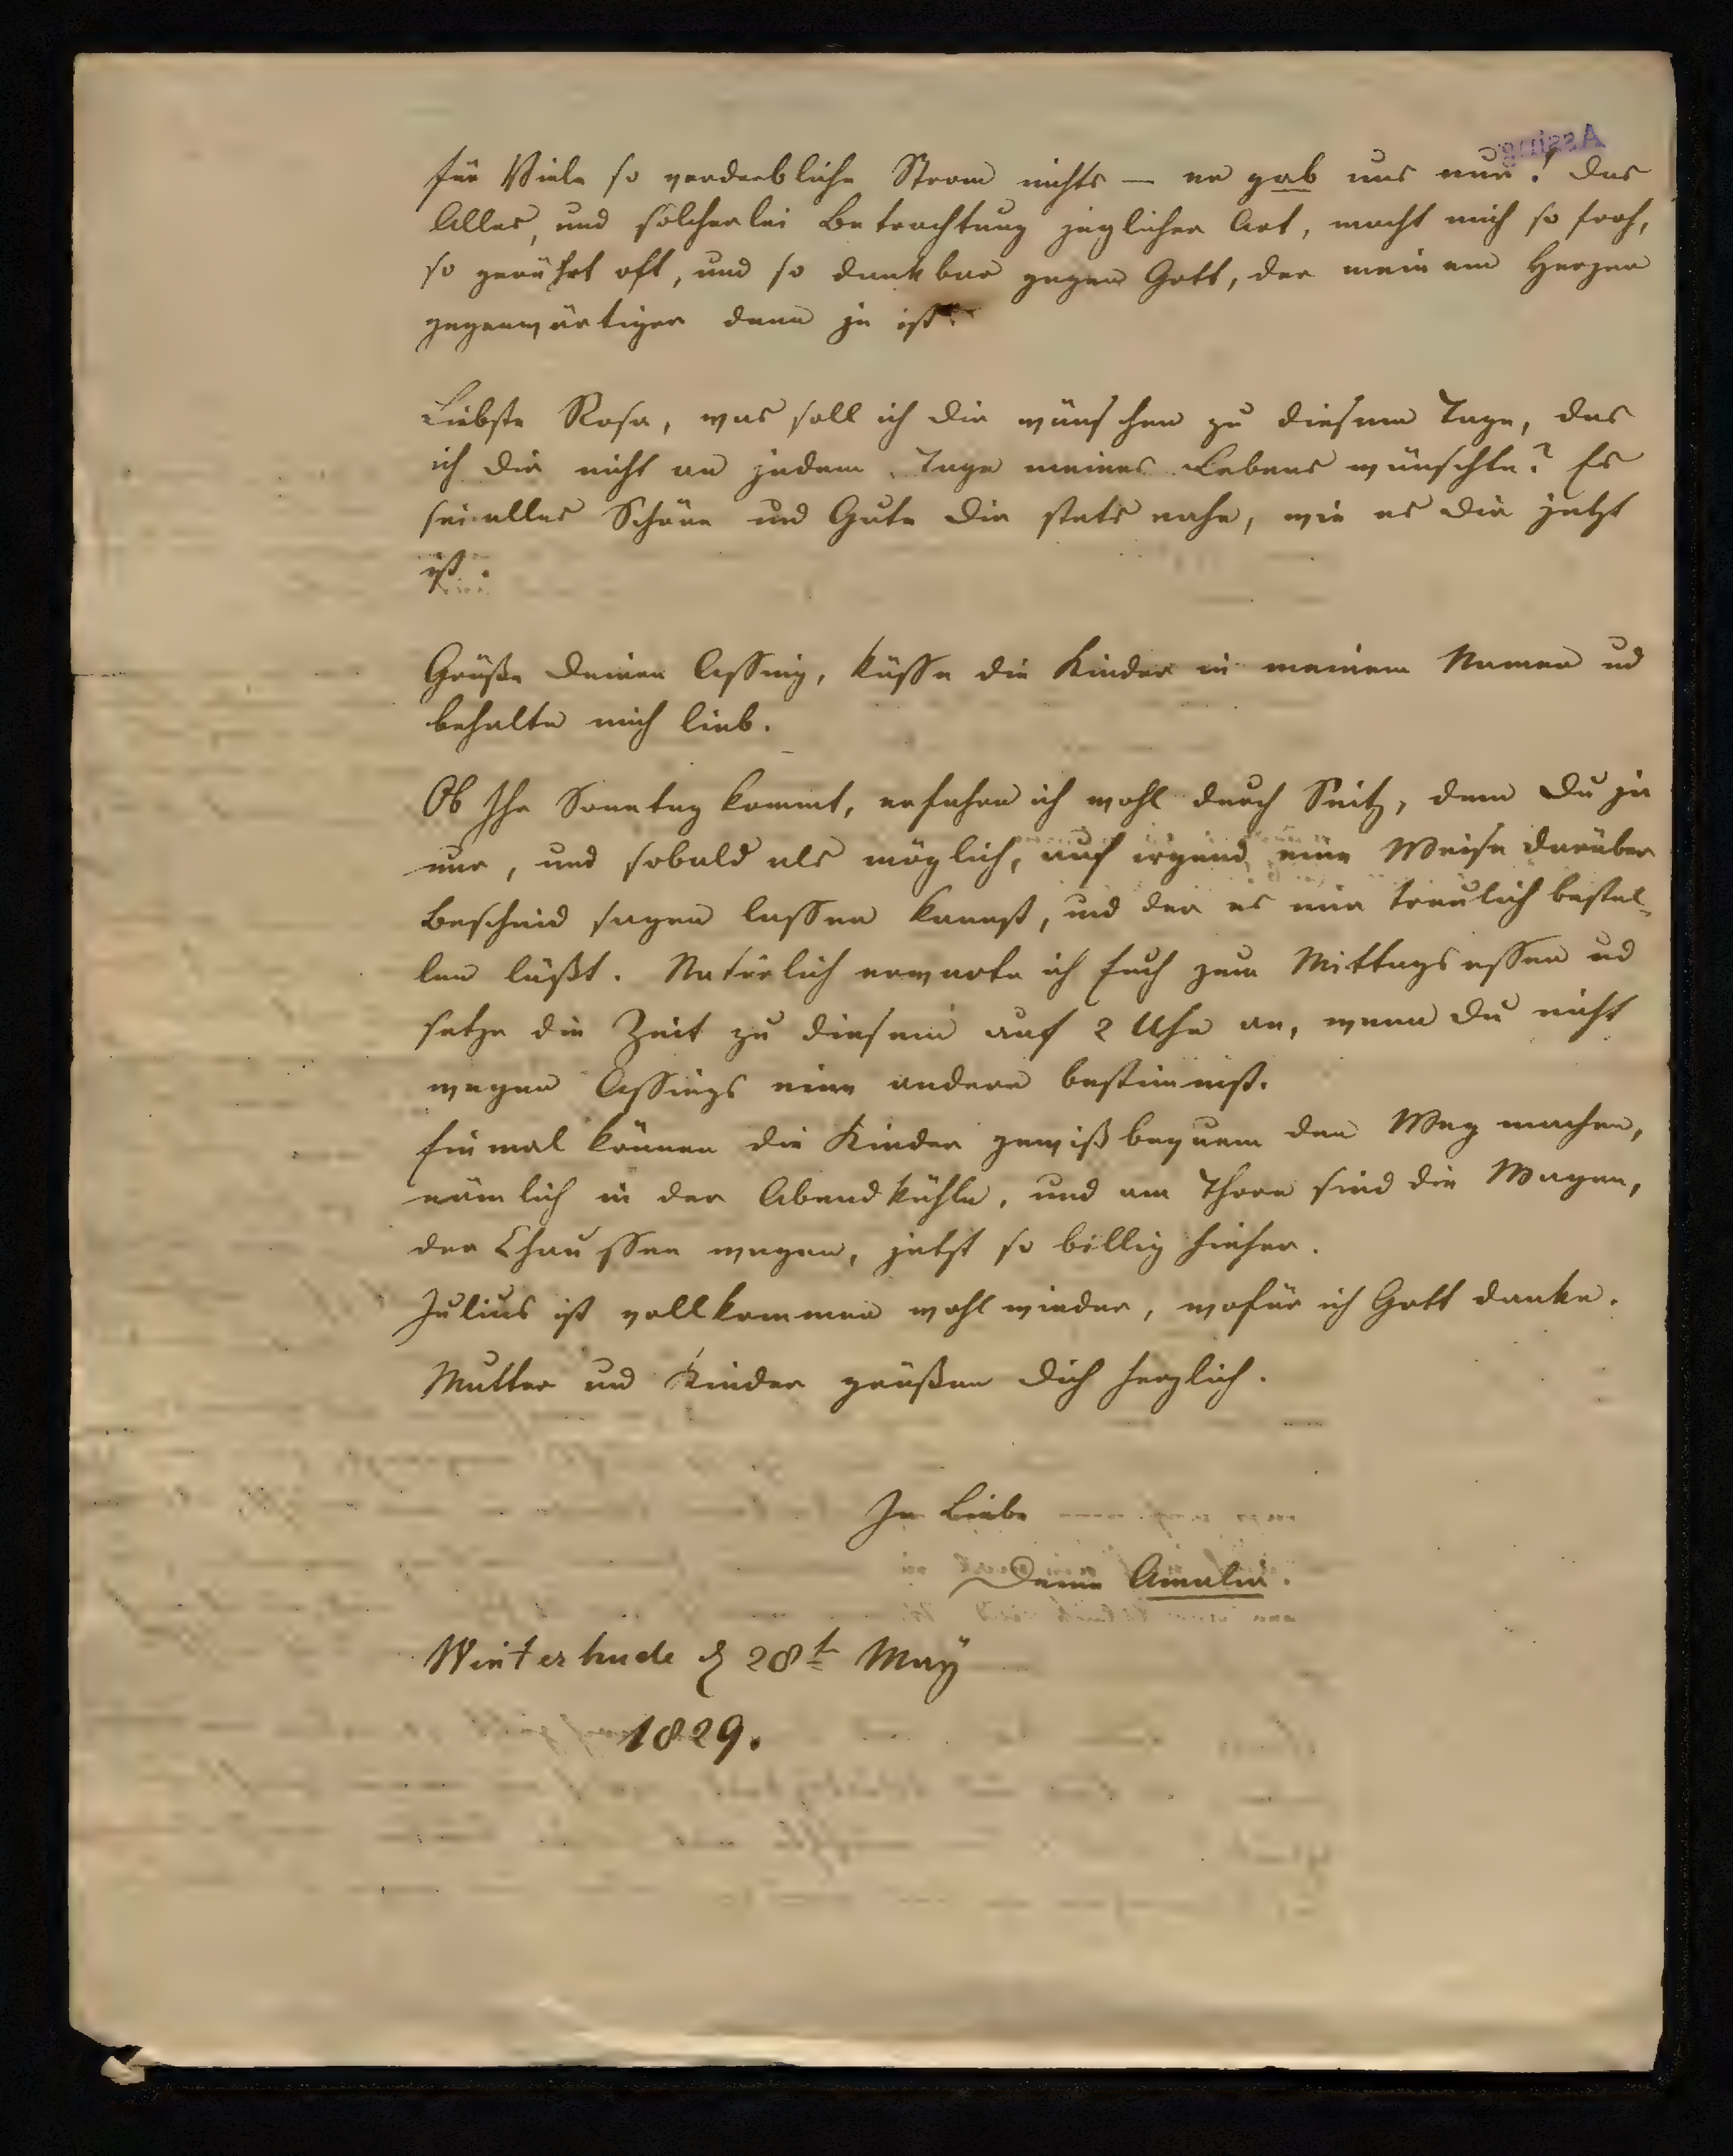 für Viele so verderbliche Strom nichts — er gab uns nur! Das
Alles, und solcherlei Betrachtung jeglicher Art, macht mich so froh,
so gerührt oft, und so dankbar gegen Gott, der meinem Herzen
gegenwärtiger denn je ist.
Liebste Rosa, was soll ich Dir wünschen zu diesem Tage, das
ich Dir nicht an jedem Tage meines Lebens wünschte? Es
sei alles Schöne und Gute Dir stets nahe, wie es Dir jetzt
ist.
Grüße Deinen Assing, küsse die Kinder in meinem Namen ud
behalte mich lieb.
Ob Ihr Sonntag kommt, erfahre ich wohl durch Suitz, dem Du ja
nur, und sobald als möglich, auf irgend eine Weise darüber
Bescheid sagen lassen kannst, und der es mir treulich bestel-
len läßt. Natürlich erwarte ich Euch zum Mittagsessen ud
setze die Zeit zu diesem auf 2 Uhr an, wenn Du nicht
wegen Assings eine andere bestimmst.
Einmal können die Kinder gewiß bequem den Weg machen,
nämlich in der Abendkühle, und am Thore sind die Wagen,
der Chaussee wegen, jetzt so billig hieher.
Julius ist vollkommen wohl wieder, wofür ich Gott danke.
Mutter und Kinder grüßen Dich herzlich.
In Liebe
Deine Amalia.
Winterhude d 28t May
1829.